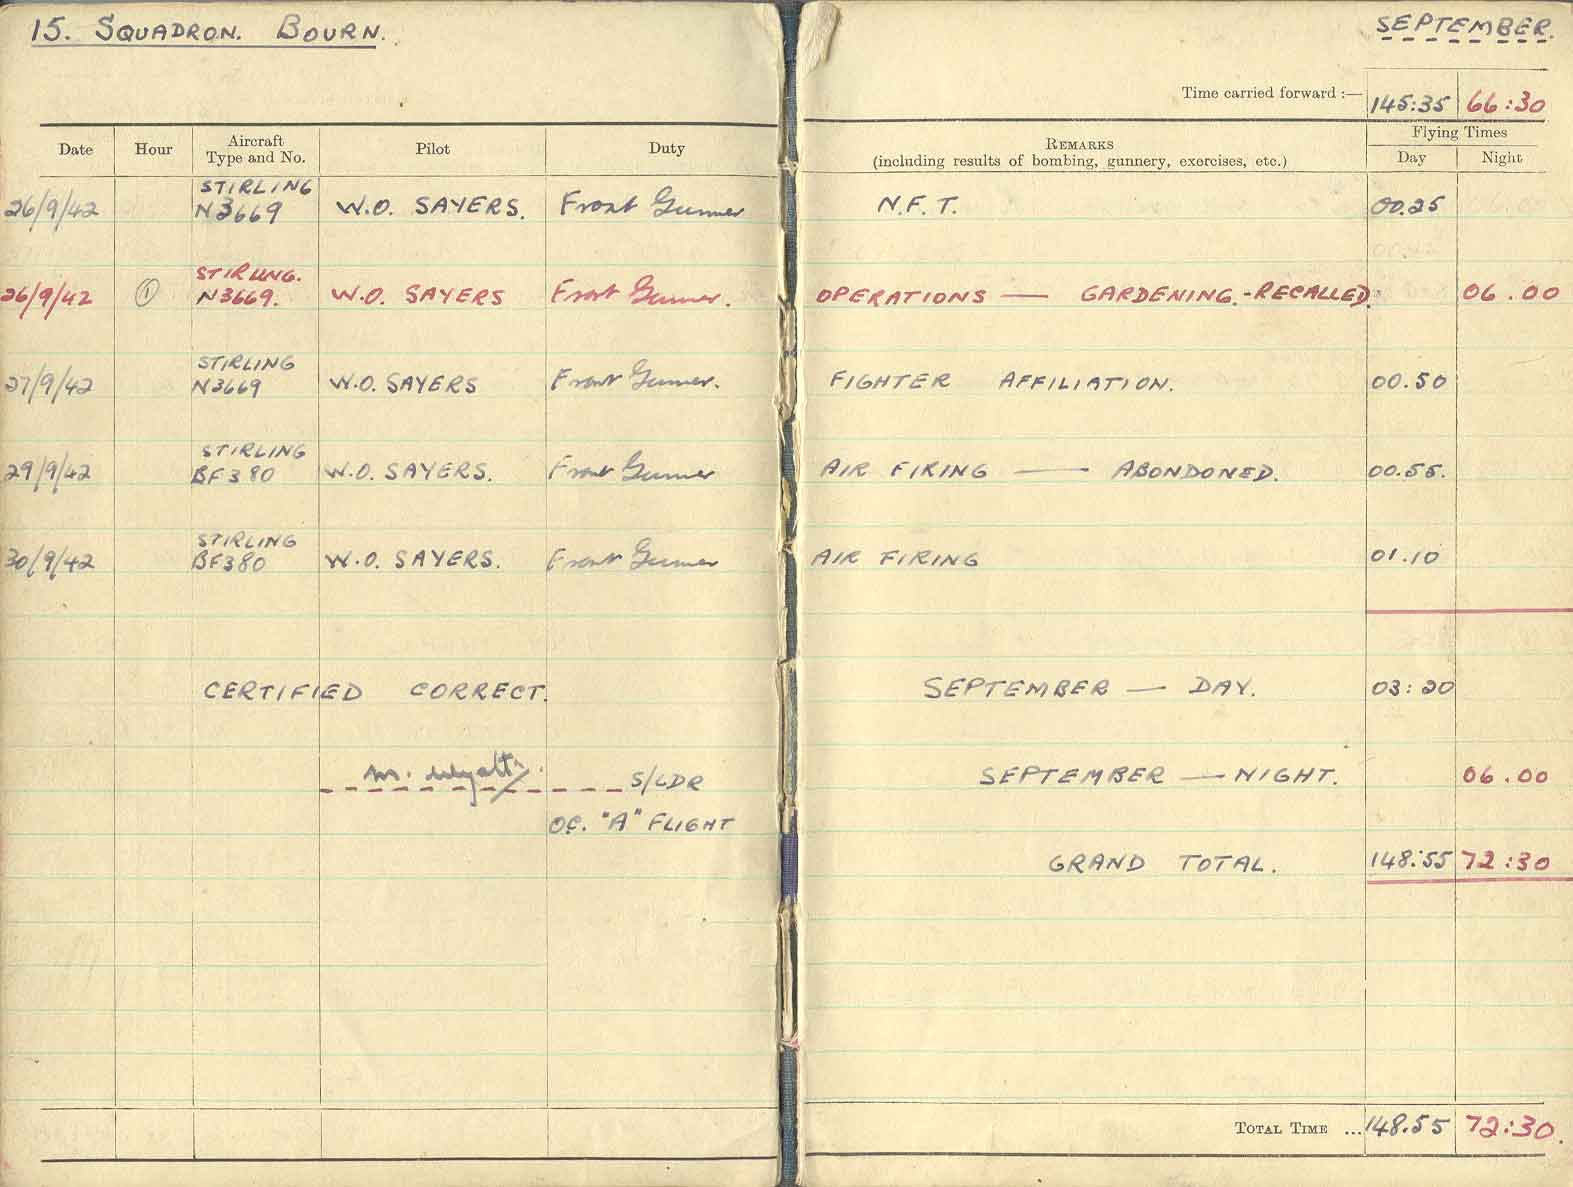 15. SQUADRON. BOURN.
SEPTEMBER.
Time carried forward :— 145:35 66:30
Date Hour Aircraft Type and No. Pilot Duty
REMARKS (including results of bombing, gunnery, exercises, etc.) Flying Times Day Night
STIRLING
26/9/42 N3669 W.O. SAYERS. Front Gunner N.F.T. 00.25
STIRLING.
26/9/42 1 N3669. W.O. SAYERS Front Gunner. OPERATIONS — GARDENING.-RECALLED. 06.00
STIRLING
27/9/42 N3669 W.O. SAYERS Front Gunner. FIGHTER AFFILIATION. 00.50
STIRLING
29/9/42 BF380 W.O. SAYERS. Front Gunner AIR FIRING — ABONDONED. 00.55.
STIRLING
30/9/42 BF380 W.O. SAYERS. Front Gunner AIR FIRING 01.10
CERTIFIED CORRECT. SEPTEMBER — DAY. 03:20
M. Wyatt. S/LDR SEPTEMBER — NIGHT. 06.00
OC. "A" FLIGHT
GRAND TOTAL. 148:55 72:30
TOTAL TIME ... 148.55 72:30.